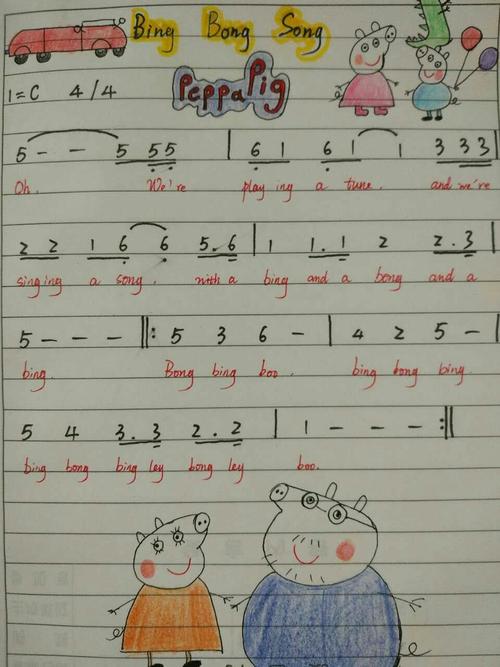 Bing Bong Song
Peppa Pig
1=C 4/4
5 - - 5 5 5 | 6 1 6 1 1 3 3 3 |
Oh. We're play ing a tune. and we're
2 2 1 6 6 5. 6 | 1 1. 1 2 2. 3 |
sing ing a song. with a bing and a bong and a
5 - - - ‖: 5 3 6 - | 4 2 5 - |
bing. Bong bing boo. bing bong bing.
5 4 3. 3 2. 2 | 1 - - - :‖
bing bong bing ley bong ley boo.